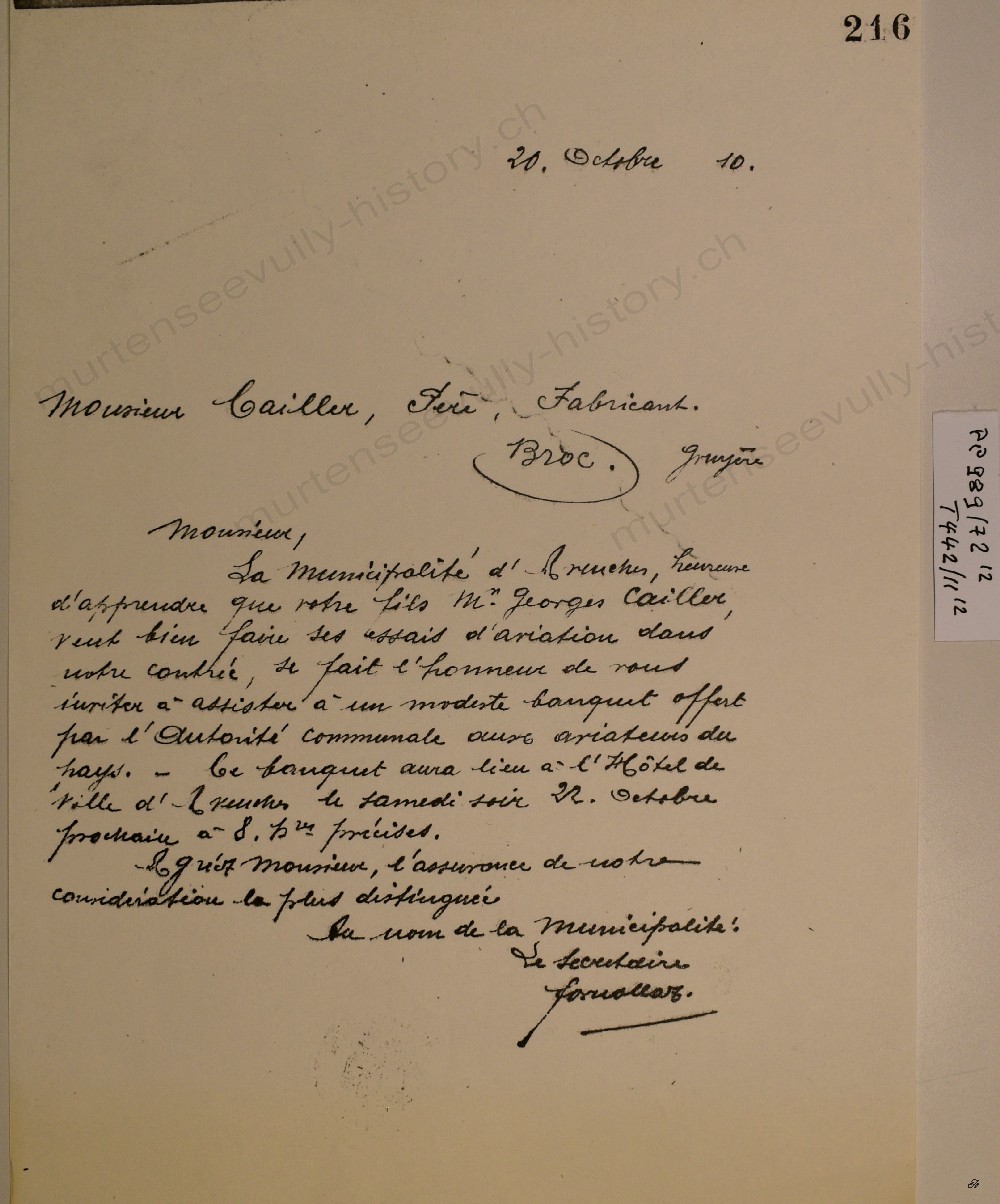 216
20. Octobre 10.
Monsieur Cailler, Père, Fabricant.
Broc. Gruyère
Monsieur,
La Municipalité d'Avenches, heureuse
d'apprendre que votre fils Mr. Georges Cailler,
veut bien faire ses essais d'aviation dans
notre contrée, se fait l'honneur de vous
inviter à assister à un modeste banquet offert
par l'Autorité communale aux aviateurs du
pays. – Ce banquet aura lieu à l'Hôtel de
Ville d'Avenches le samedi soir 22. Octobre
prochain à 8. hres précises.
Agréez Monsieur, l'assurance de notre
considération la plus distinguée
Au nom de la Municipalité:
Le Secrétaire
Fornallaz.
PP 989/72 12
T442/11 12
murtenseevully-history.ch
murtenseevully-history.ch
murtenseevully-hist